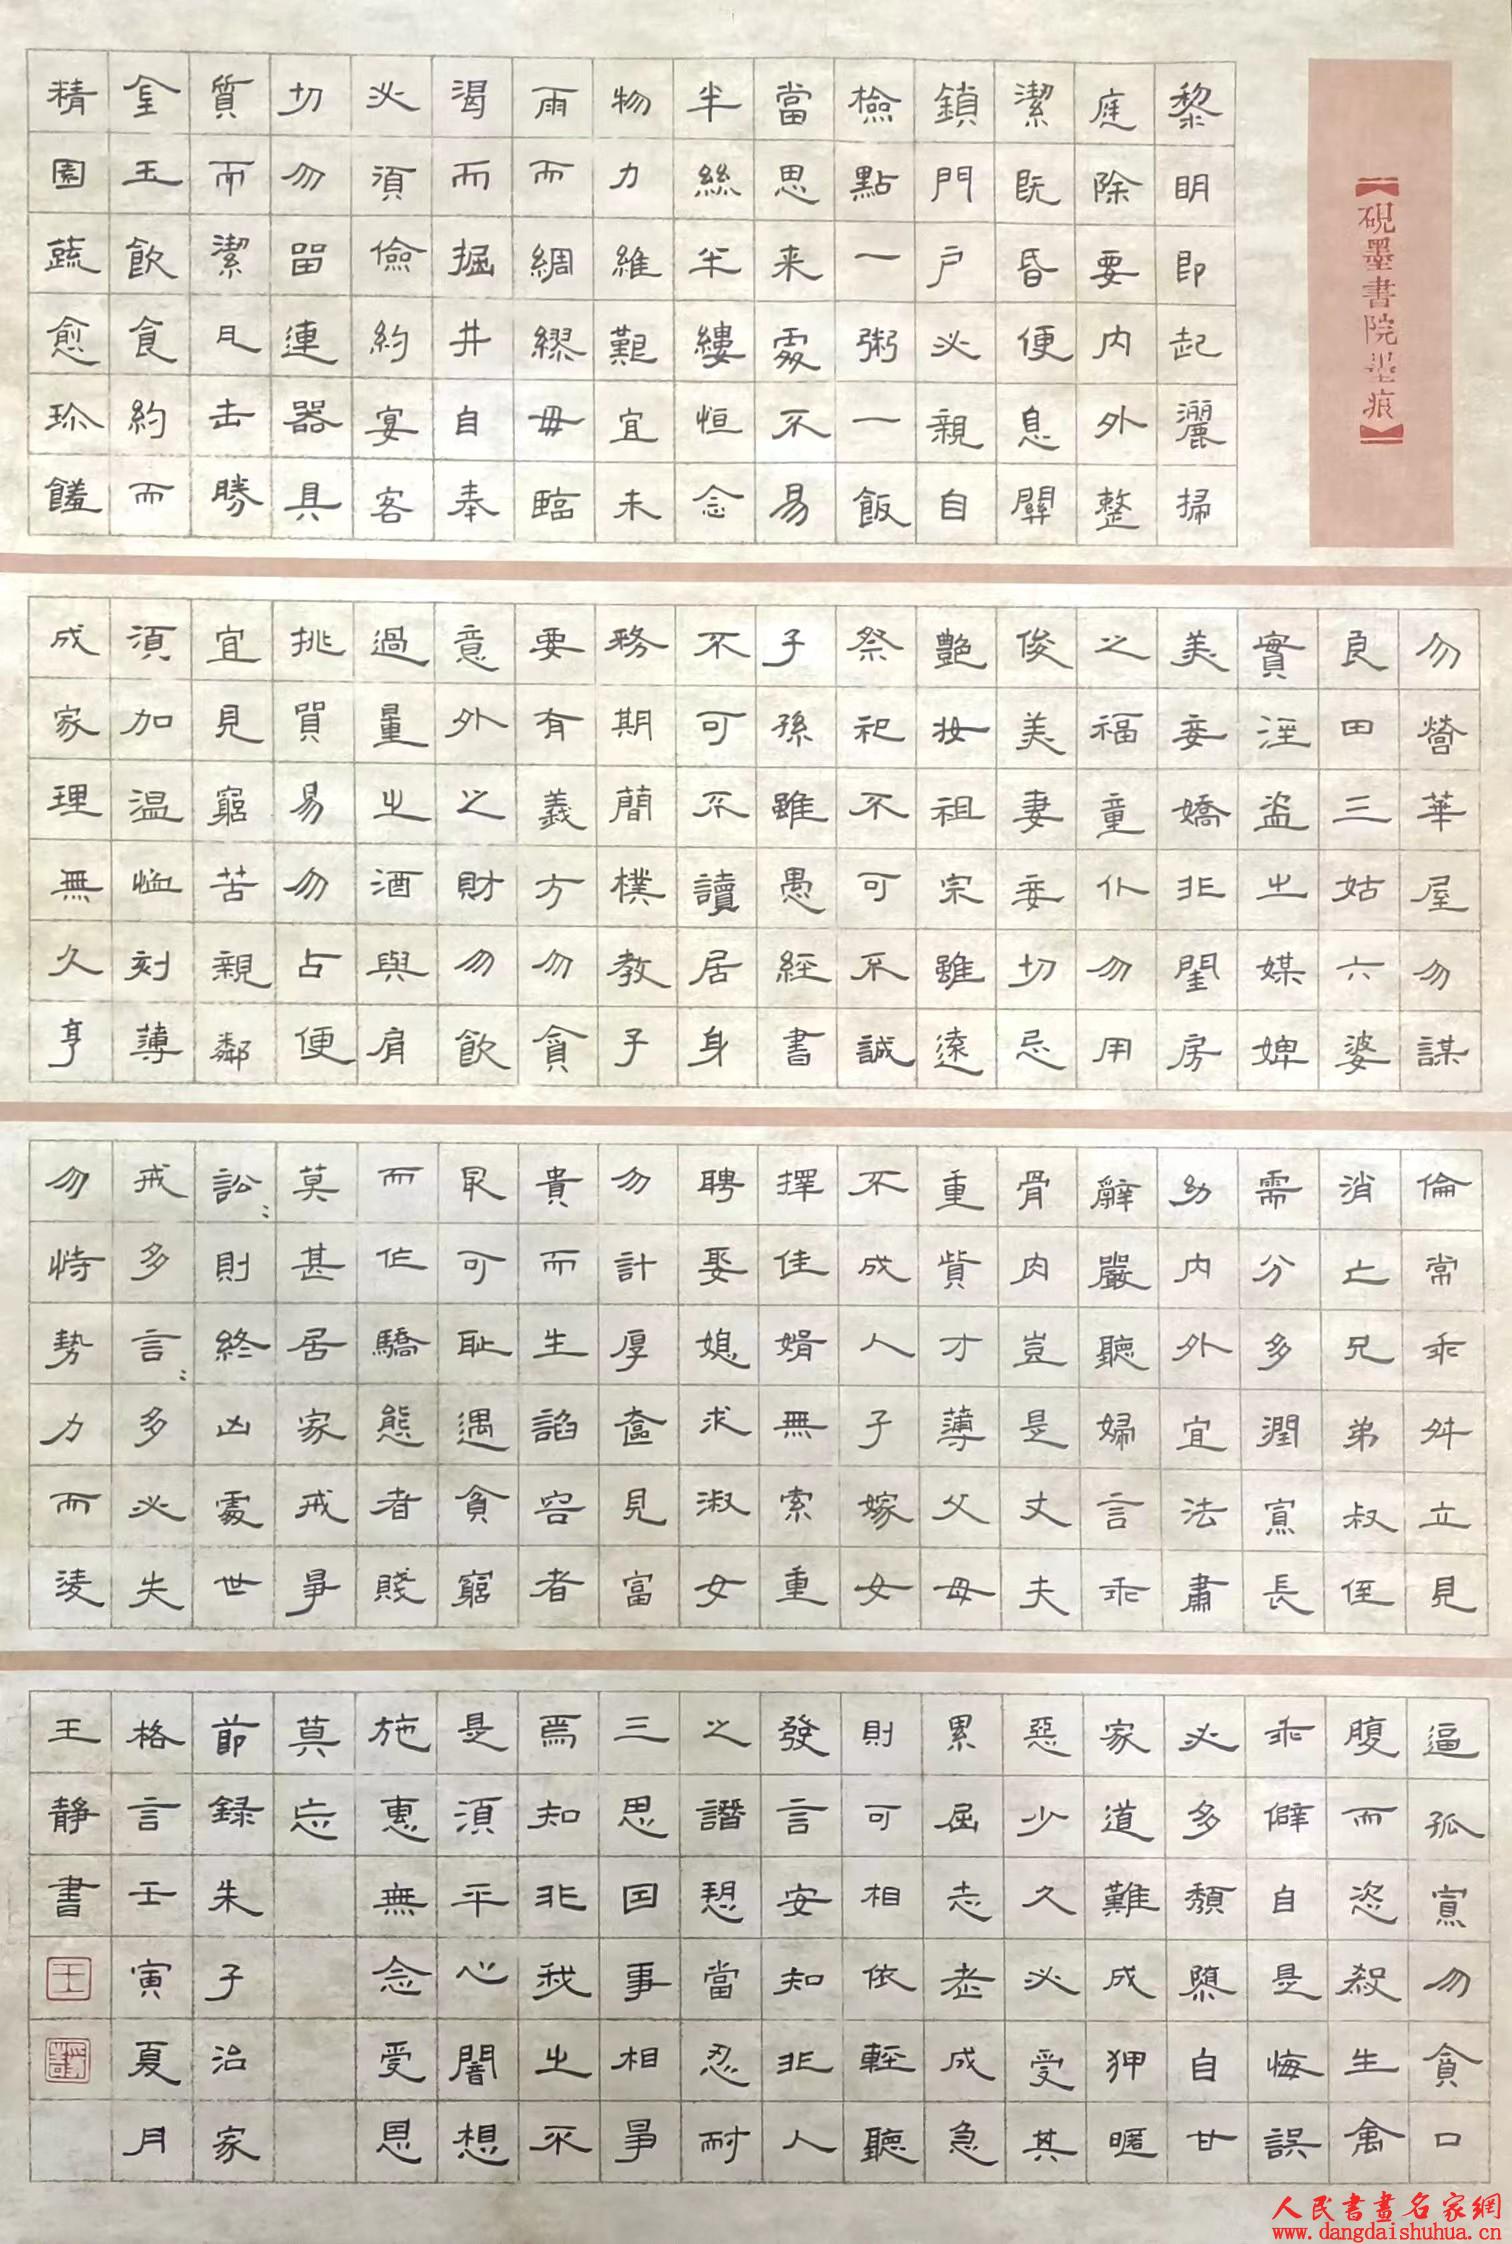 【硯墨書院墨痕】
黎明即起灑掃
庭除要内外整
潔既昏便息關
鎖門户必親自
檢點一粥一飯
當思来處不易
半絲半縷恒念
物力維艱宜未
雨而綢繆毋臨
渴而掘井自奉
必須儉約宴客
切勿留連器具
質而潔瓦缶勝
金玉飲食約而
精園蔬愈珍饈
勿營華屋勿謀
良田三姑六婆
實淫盗之媒婢
美妾嬌非閨房
之福童仆勿用
俊美妻妾切忌
艷妝祖宗雖遠
祭祀不可不誠
子孫雖愚經書
不可不讀居身
務期簡樸教子
要有義方勿貪
意外之財勿飲
過量之酒與肩
挑貿易勿占便
宜見窮苦親鄰
須加温恤刻薄
成家理無久亨
倫常乖舛立見
消亡兄弟叔侄
需分多潤寡長
幼内外宜法肅
辭嚴聽婦言乖
骨肉豈是丈夫
重貲才薄父母
不成人子嫁女
擇佳婿無索重
聘娶媳求淑女
勿計厚奩見富
貴而生諂容者
最可耻遇貧窮
而作驕態者賤
莫甚居家戒爭
訟:則終凶處世
戒多言:多必失
勿恃勢力而凌
逼孤寡勿貪口
腹而恣殺生禽
乖僻自是悔誤
必多頹隳自甘
家道難成狎暱
惡少久必受其
累屈志老成急
則可相依輕聽
發言安知非人
之譖愬當忍耐
三思因事相爭
焉知非我之不
是須平心闇想
施惠無念受恩
莫忘
節録朱子治家
格言壬寅夏月
王静書
王
人民書畫名家網
www.dangdaishuhua.cn